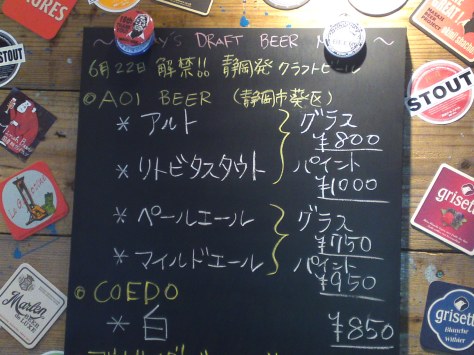 ~ DAY'S DRAFT BEER ~
6月22日 解禁!! 静岡発 クラフトビール
◎AOI BEER (静岡市葵区)
* アルト
グラス
¥800
* リトビタスタウト
パイント
¥1000
* ペールエール
グラス
¥750
* マイルドエール
パイント
¥950
◎COEDO
* 白
¥850
STOUT
STOUT
grisette
grisette
Blanche
Marlen